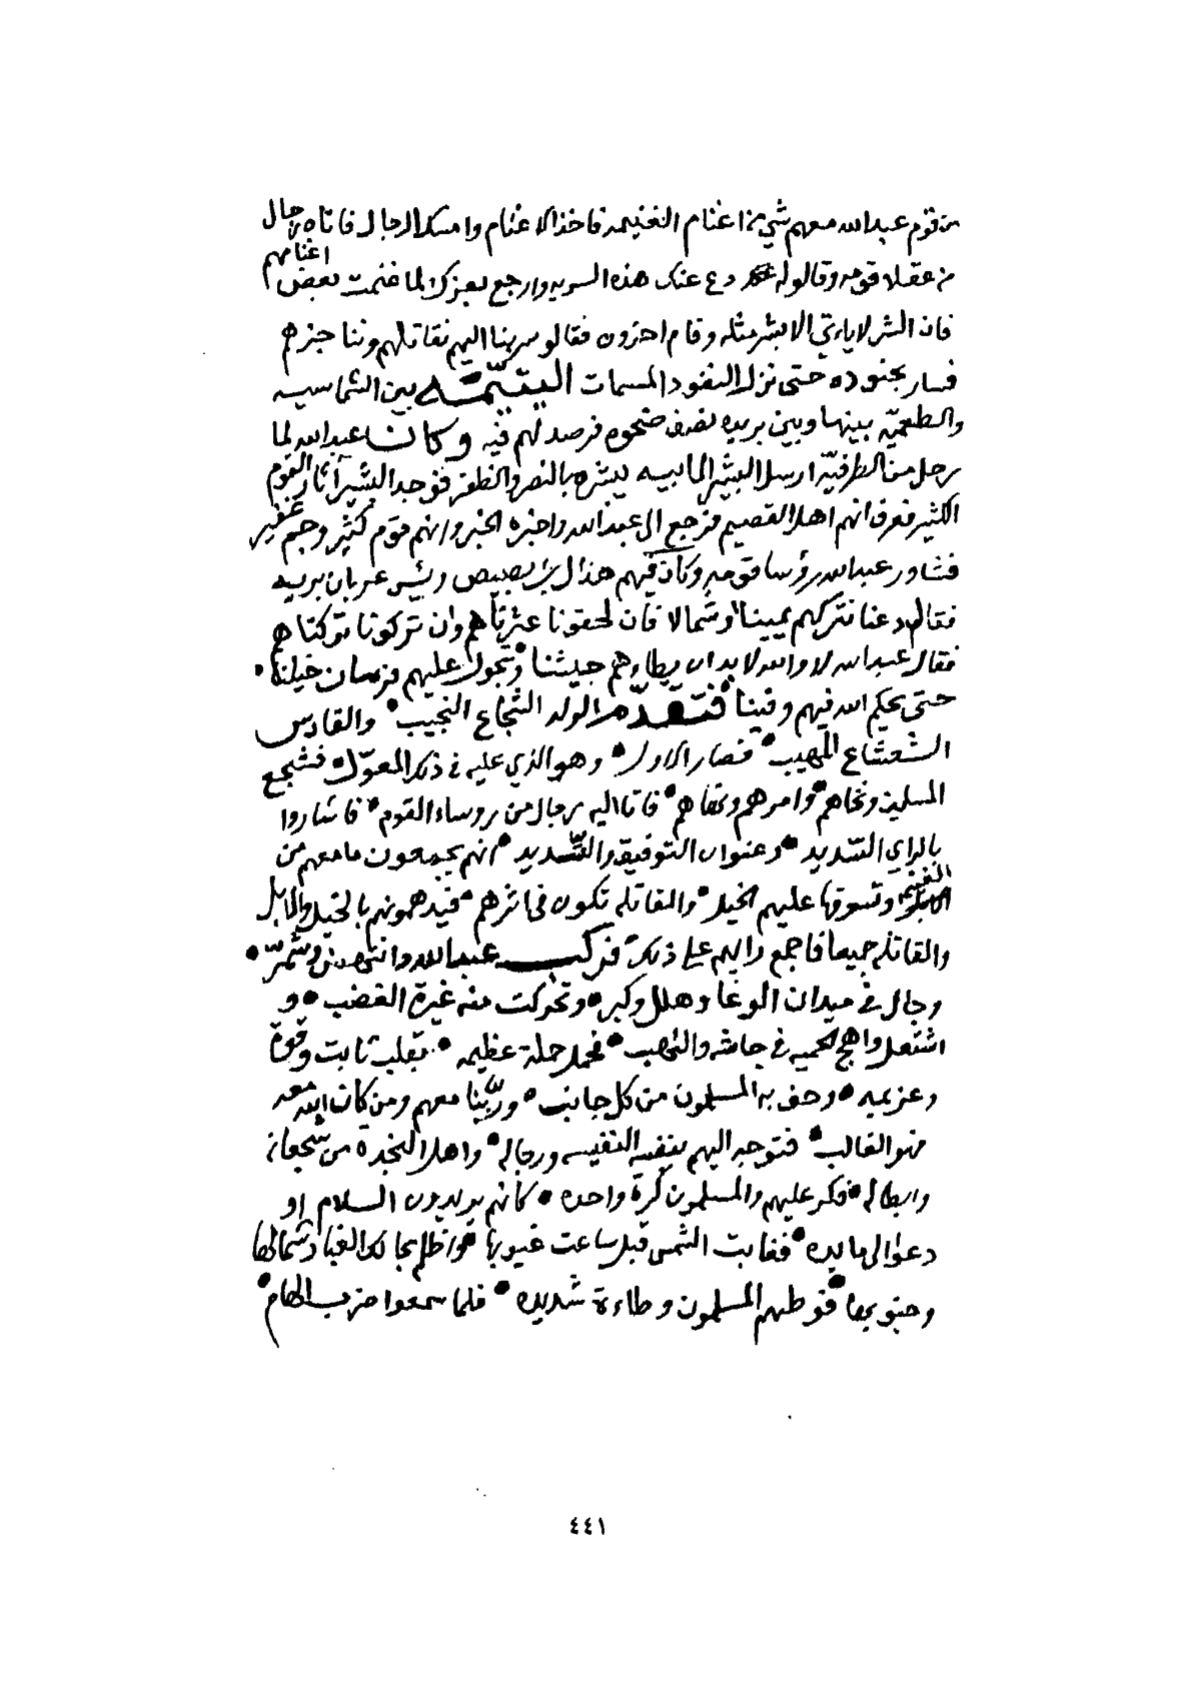 من قوم عبدالله معهم شي من اغنام الغنيمه فاخذ الاغنام وامسك الرجال فاتاه رجال
من عقلا قومه وقالوا له دع عنك هذه السريه وارجع بعزك لما غنمت بعض اغنامهم
فان الشر لاياءتي الا بشر مثله وقام اخرون فقالو سر بنا اليهم نقاتلهم وننا جزهم
فسار بجنوده حتى نزل النفود المسمات اليتيّمه بين الشماسيه
والطعميّه بينها وبين بريده نصف ضحوه فرصد لهم فيه وكان عبدالله لما
رحل من الطرفيّه ارسل البشير الى ابيه يبشره بالنصر والظفر فوجد البشير آثار القوم
الكثير فعرف انهم اهل القصيم فرجع الى عبدالله واخبره الخبر وانهم قوم كثير وجم غفير
فشاور عبدالله رؤسا قومه وكان فيهم هذال بن بصيص رئيس عربان بريه
فقال دعنا نتركهم يمينا او شمالا فان لحقونا عثرناهم وان تركونا تركناهم
فقال عبدالله لا والله لا بد ان يطاءهم جيشنا وتجول عليهم فرسان خيلنا •
حتى يحكم الله فيهم وفينا • فتقدّم الولد الشجاع النجيب • والقادس
الشعشاع المهيب • فصار الاول • وهو الذي عليه في ذلك المعوّل • فشجع
المسلمين ونخاهم • وامرهم ونهاهم • فاتا اليه رجال من روساء القوم • فاشاروا
بالراي السّديد • وعنوان التوفيق والتّسديد • انهم يجمعون مامعهم من
الابل الغنيمه وتسوقها عليهم الخيل • والمقاتله تكون في اثرهم • فيدهمونهم بالخيل والابل
والمقاتله جميعا فاجمع رايهم على ذلك • فركب عبدالله وانتهض وشمّر •
وجال في ميدان الوغا وهلل وكبر • وتحركت منه غيرة الغضب • و
اشتعل واهج الحميه في جاشه والتهب • فحمل حملة عظيمه • بقلب ثابت وقوة
وعزيمه • وحف به المسلمون من كل جانب • وربّنا معهم ومن كان الله معه
فهو الغالب • فتوجه اليهم بنفسه النفيسه ورجاله • واهل النجدة من شجعانه
وابطاله • فكر عليهم والمسلمون كرة واحده • كانهم يريدون السلام او
دعوا الى مايده • فغابت الشمس قبل ساعت غيوبها • واظلم بحالك الغبار شمالها
وجنوبها • فوطئهم المسلمون وطاءة شديده • فلما سمعوا ضرب الهام •
٤٤١